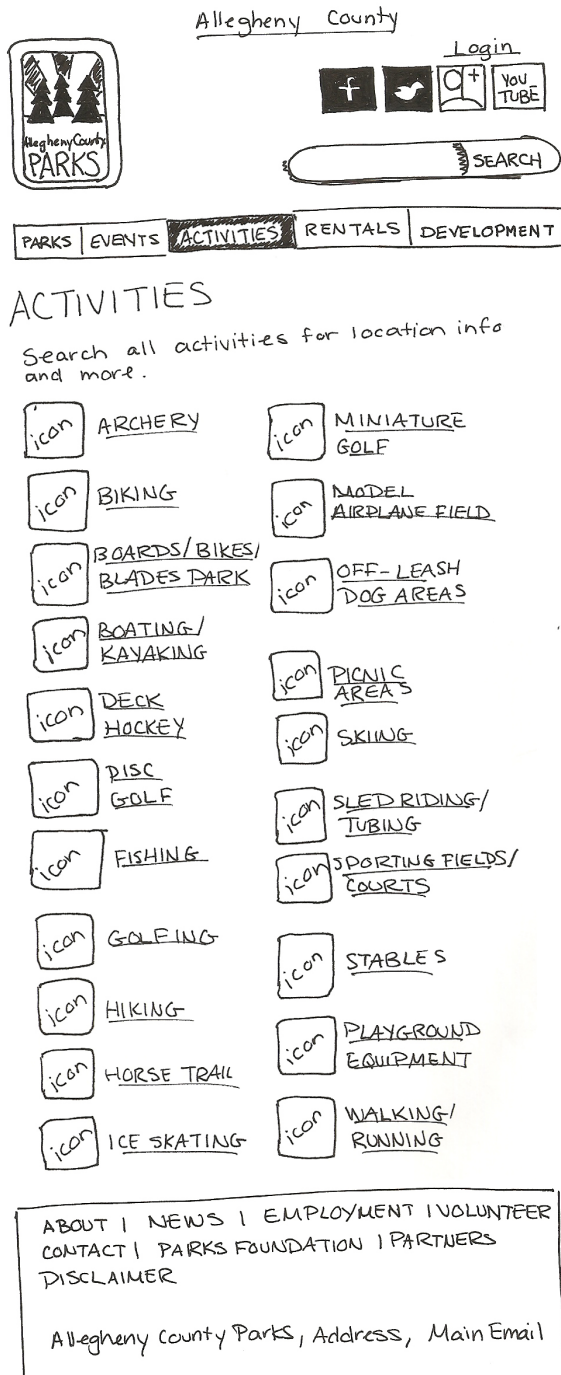 Allegheny County
Login
f
YOU
TUBE
Allegheny County
PARKS
SEARCH
PARKS | EVENTS ACTIVITIES RENTALS | DEVELOPMENT
ACTIVITIES
Search all activities for location info
and more.
icon ARCHERY
icon BIKING
icon BOARDS/BIKES/
BLADES PARK
icon BOATING/
KAYAKING
icon DECK
HOCKEY
icon DISC
GOLF
icon FISHING
icon GOLFING
icon HIKING
icon HORSE TRAIL
icon ICE SKATING
icon MINIATURE
GOLF
icon MODEL
AIRPLANE FIELD
icon OFF-LEASH
DOG AREAS
icon PICNIC
AREAS
icon SKIING
icon SLED RIDING/
TUBING
icon SPORTING FIELDS/
COURTS
icon STABLES
icon PLAYGROUND
EQUIPMENT
icon WALKING/
RUNNING
ABOUT | NEWS | EMPLOYMENT | VOLUNTEER
CONTACT | PARKS FOUNDATION | PARTNERS
DISCLAIMER
Allegheny County Parks, Address, Main Email